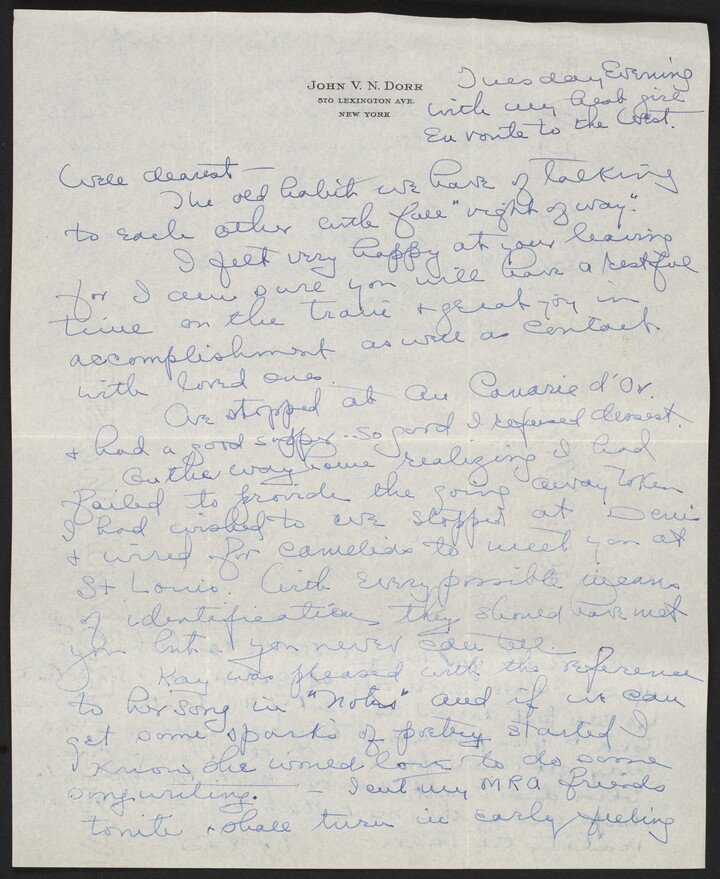 JOHN V. N. DORR
570 LEXINGTON AVE.
NEW YORK
Tuesday Evening
with my best girl
En route to the West.
Well dearest —
The old habit we have of talking
to each other with full "right of way".
I felt very happy at your leaving
for I am sure you will have a restful
time on the train & great joy in
accomplishment as well as contact
with loved ones.
We stopped at Au Canarie d'Or.
& had a good supper. So good I refused dessert.
On the way home realizing I had
failed to provide the going away token
I had wished to we stopped at
& wired for camelias to meet you at
St Louis. With every possible means
of identification they should have met
you but you never can tell —
Kay was pleased with the reference
to her song in "Notes" and if we can
get some sparks of poetry started I
know she would love to do some
song writing. — I cut my MRA friends
tonite & shall turn in early feeling